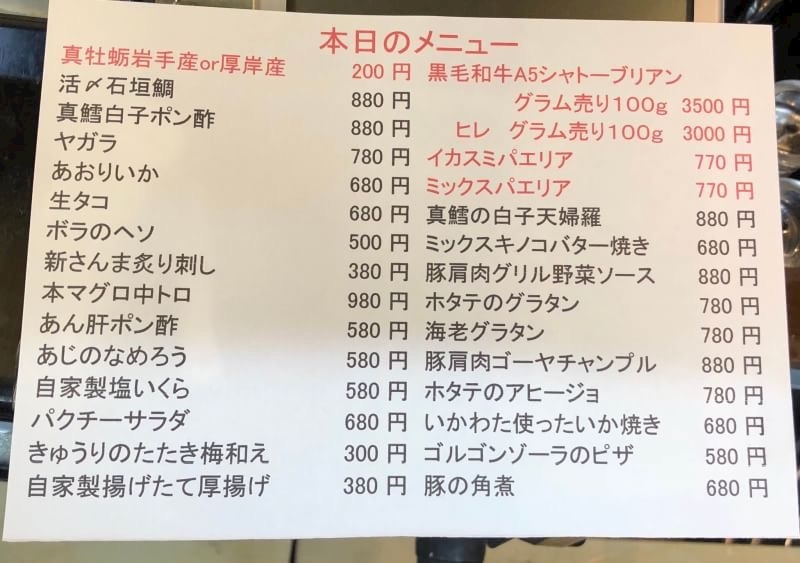 本日のメニュー
真牡蛎岩手産or厚岸産 200 円
活〆石垣鯛 880 円
真鱈白子ポン酢 880 円
ヤガラ 780 円
あおりいか 680 円
生タコ 680 円
ボラのヘソ 500 円
新さんま炙り刺し 380 円
本マグロ中トロ 980 円
あん肝ポン酢 580 円
あじのなめろう 580 円
自家製塩いくら 580 円
パクチーサラダ 680 円
きゅうりのたたき梅和え 300 円
自家製揚げたて厚揚げ 380 円
黒毛和牛A5シャトーブリアン
グラム売り100g 3500 円
ヒレ グラム売り100g 3000 円
イカスミパエリア 770 円
ミックスパエリア 770 円
真鱈の白子天婦羅 880 円
ミックスキノコバター焼き 680 円
豚肩肉グリル野菜ソース 880 円
ホタテのグラタン 780 円
海老グラタン 780 円
豚肩肉ゴーヤチャンプル 880 円
ホタテのアヒージョ 780 円
いかわた使ったいか焼き 680 円
ゴルゴンゾーラのピザ 580 円
豚の角煮 680 円